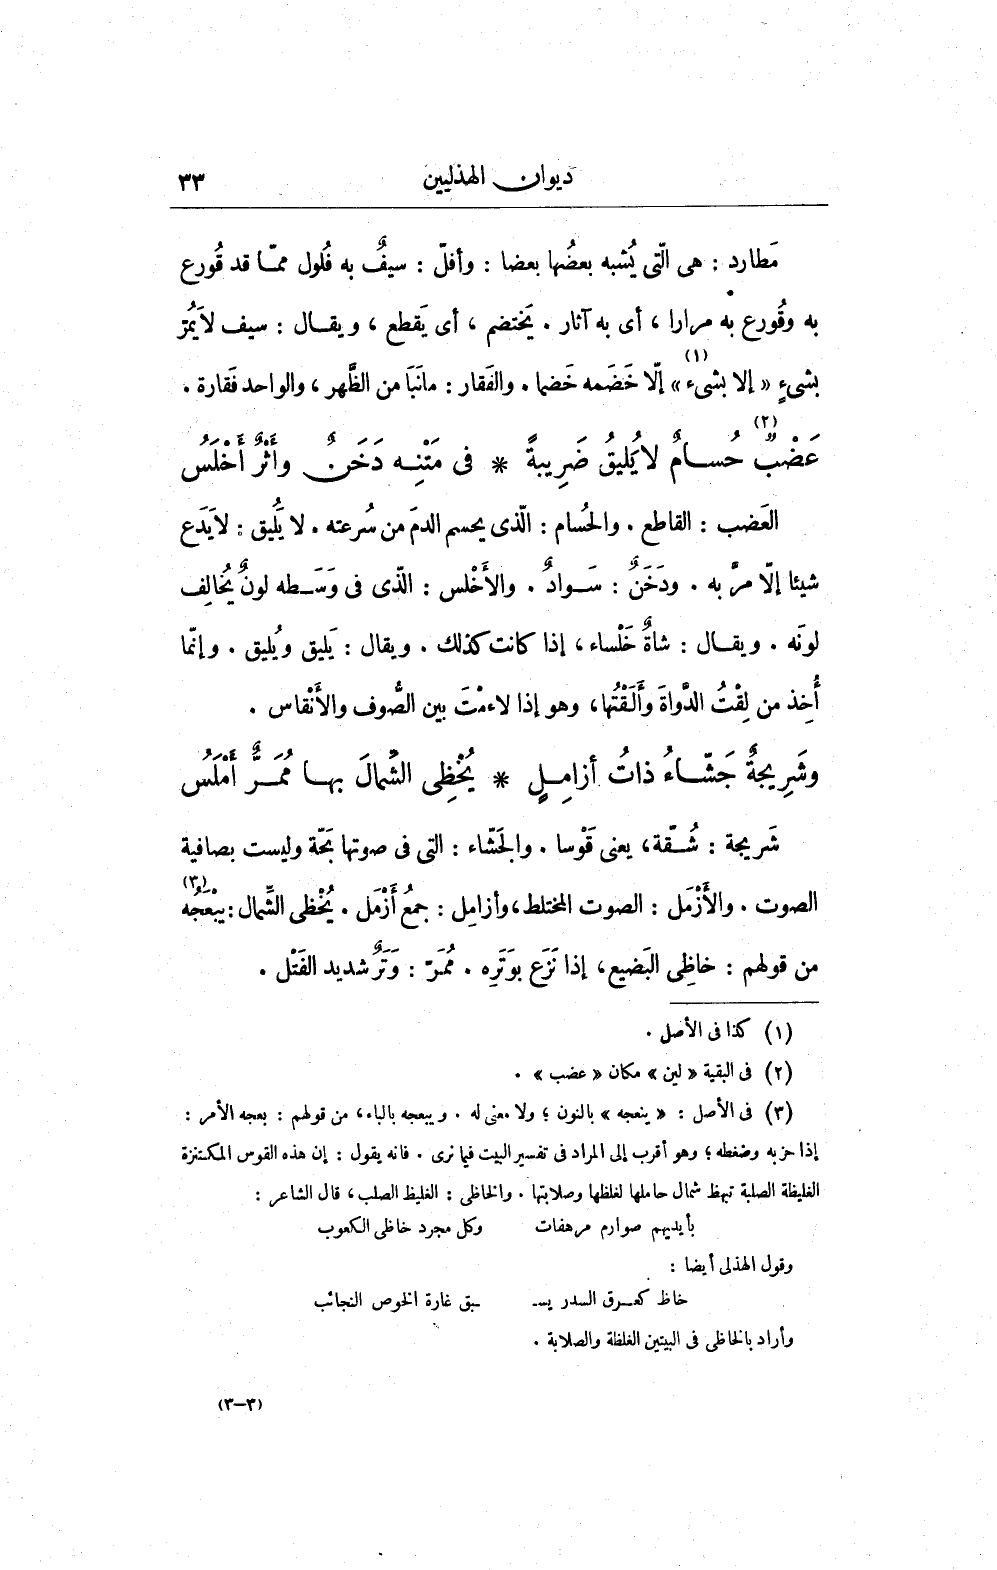 ديوان الهذليين ٣٣
مَطارد : هى الّتى يُشبه بعضُها بعضا : وأفلّ : سيفٌ به فُلول ممّا قد قُورع
به وقُورع به مرارا ، أى به آثار . يَختضم ، أى يَقطع ، ويقال : سيف لا يَمُرّ
بشىءٍ « إلا بشىء » (١) إلّا خَضَمه خَضما . والفَقار : مانَبَا من الظَّهر ، والواحد فَقارة .
عَضْبٌ (٢) حُسامٌ لا يُليقُ ضَرِيبةً * فى مَتْنِه دَخَنٌ وأَثْرٌ أَخْلَسُ
العَضب : القاطع . والحُسام : الّذى يحسم الدمَ من سُرعته . لا يَُليق : لا يَدَع
شيئا إلّا مرَّ به . ودَخَنٌ : سَوادٌ . والأَخْلس : الّذى فى وَسَطه لونٌ يُخالِف
لونَه . ويقال : شاةٌ خَلْساء ، إذا كانت كذلك . ويقال : يَليق ويُليق . وإنّما
أُخِذ من لِقْتُ الدَّواةَ وأَلَقْتُها ، وهو إذا لاءمْتَ بين الصُّوف والأَنْقاس .
وشَرِيجةٌ جَشّاءُ ذاتُ أزامِلٍ * يُخْظِى الشِّمالَ بها مُمَرٌّ أَمْلَسُ
شَريجة : شُقّة ، يعنى قَوْسا . والجَشّاء : التى فى صوتها بَحّة وليست بصافية
الصوت . والأَزْمَل : الصوت المختلط ، وأزامِل : جمعُ أَزْمَل . يُخْظِى الشِّمال : يبْعَجُه (٣)
من قولهم : خاظِى البَضيع ، إذا نَزَع بوَتَرِه . مُمَرّ : وَتَرٌ شديد الفَتْل .
(١) كذا فى الأصل .
(٢) فى البقية « لين » مكان « عضب » .
(٣) فى الأصل : « ينعجه » بالنون ؛ ولا معنى له . ويبعجه بالباء ، من قولهم : بعجه الأمر :
إذا حزبه وضغطه ؛ وهو أقرب إلى المراد فى تفسير البيت فيما نرى . فانه يقول : إن هذه القوس المكتنزة
الغليظة الصلبة تبهظ شمال حاملها لغلظها وصلابتها . والخاظى : الغليظ الصلب ، قال الشاعر :
بأيديهم صوارم مرهفات وكل مجرد خاظى الكعوب
وقول الهذلى أيضا :
خاظ كعرق السدر يسـ ـبق غارة الخوص النجائب
وأراد بالخاظى فى البيتين الغلظة والصلابة .
(٣-٣)